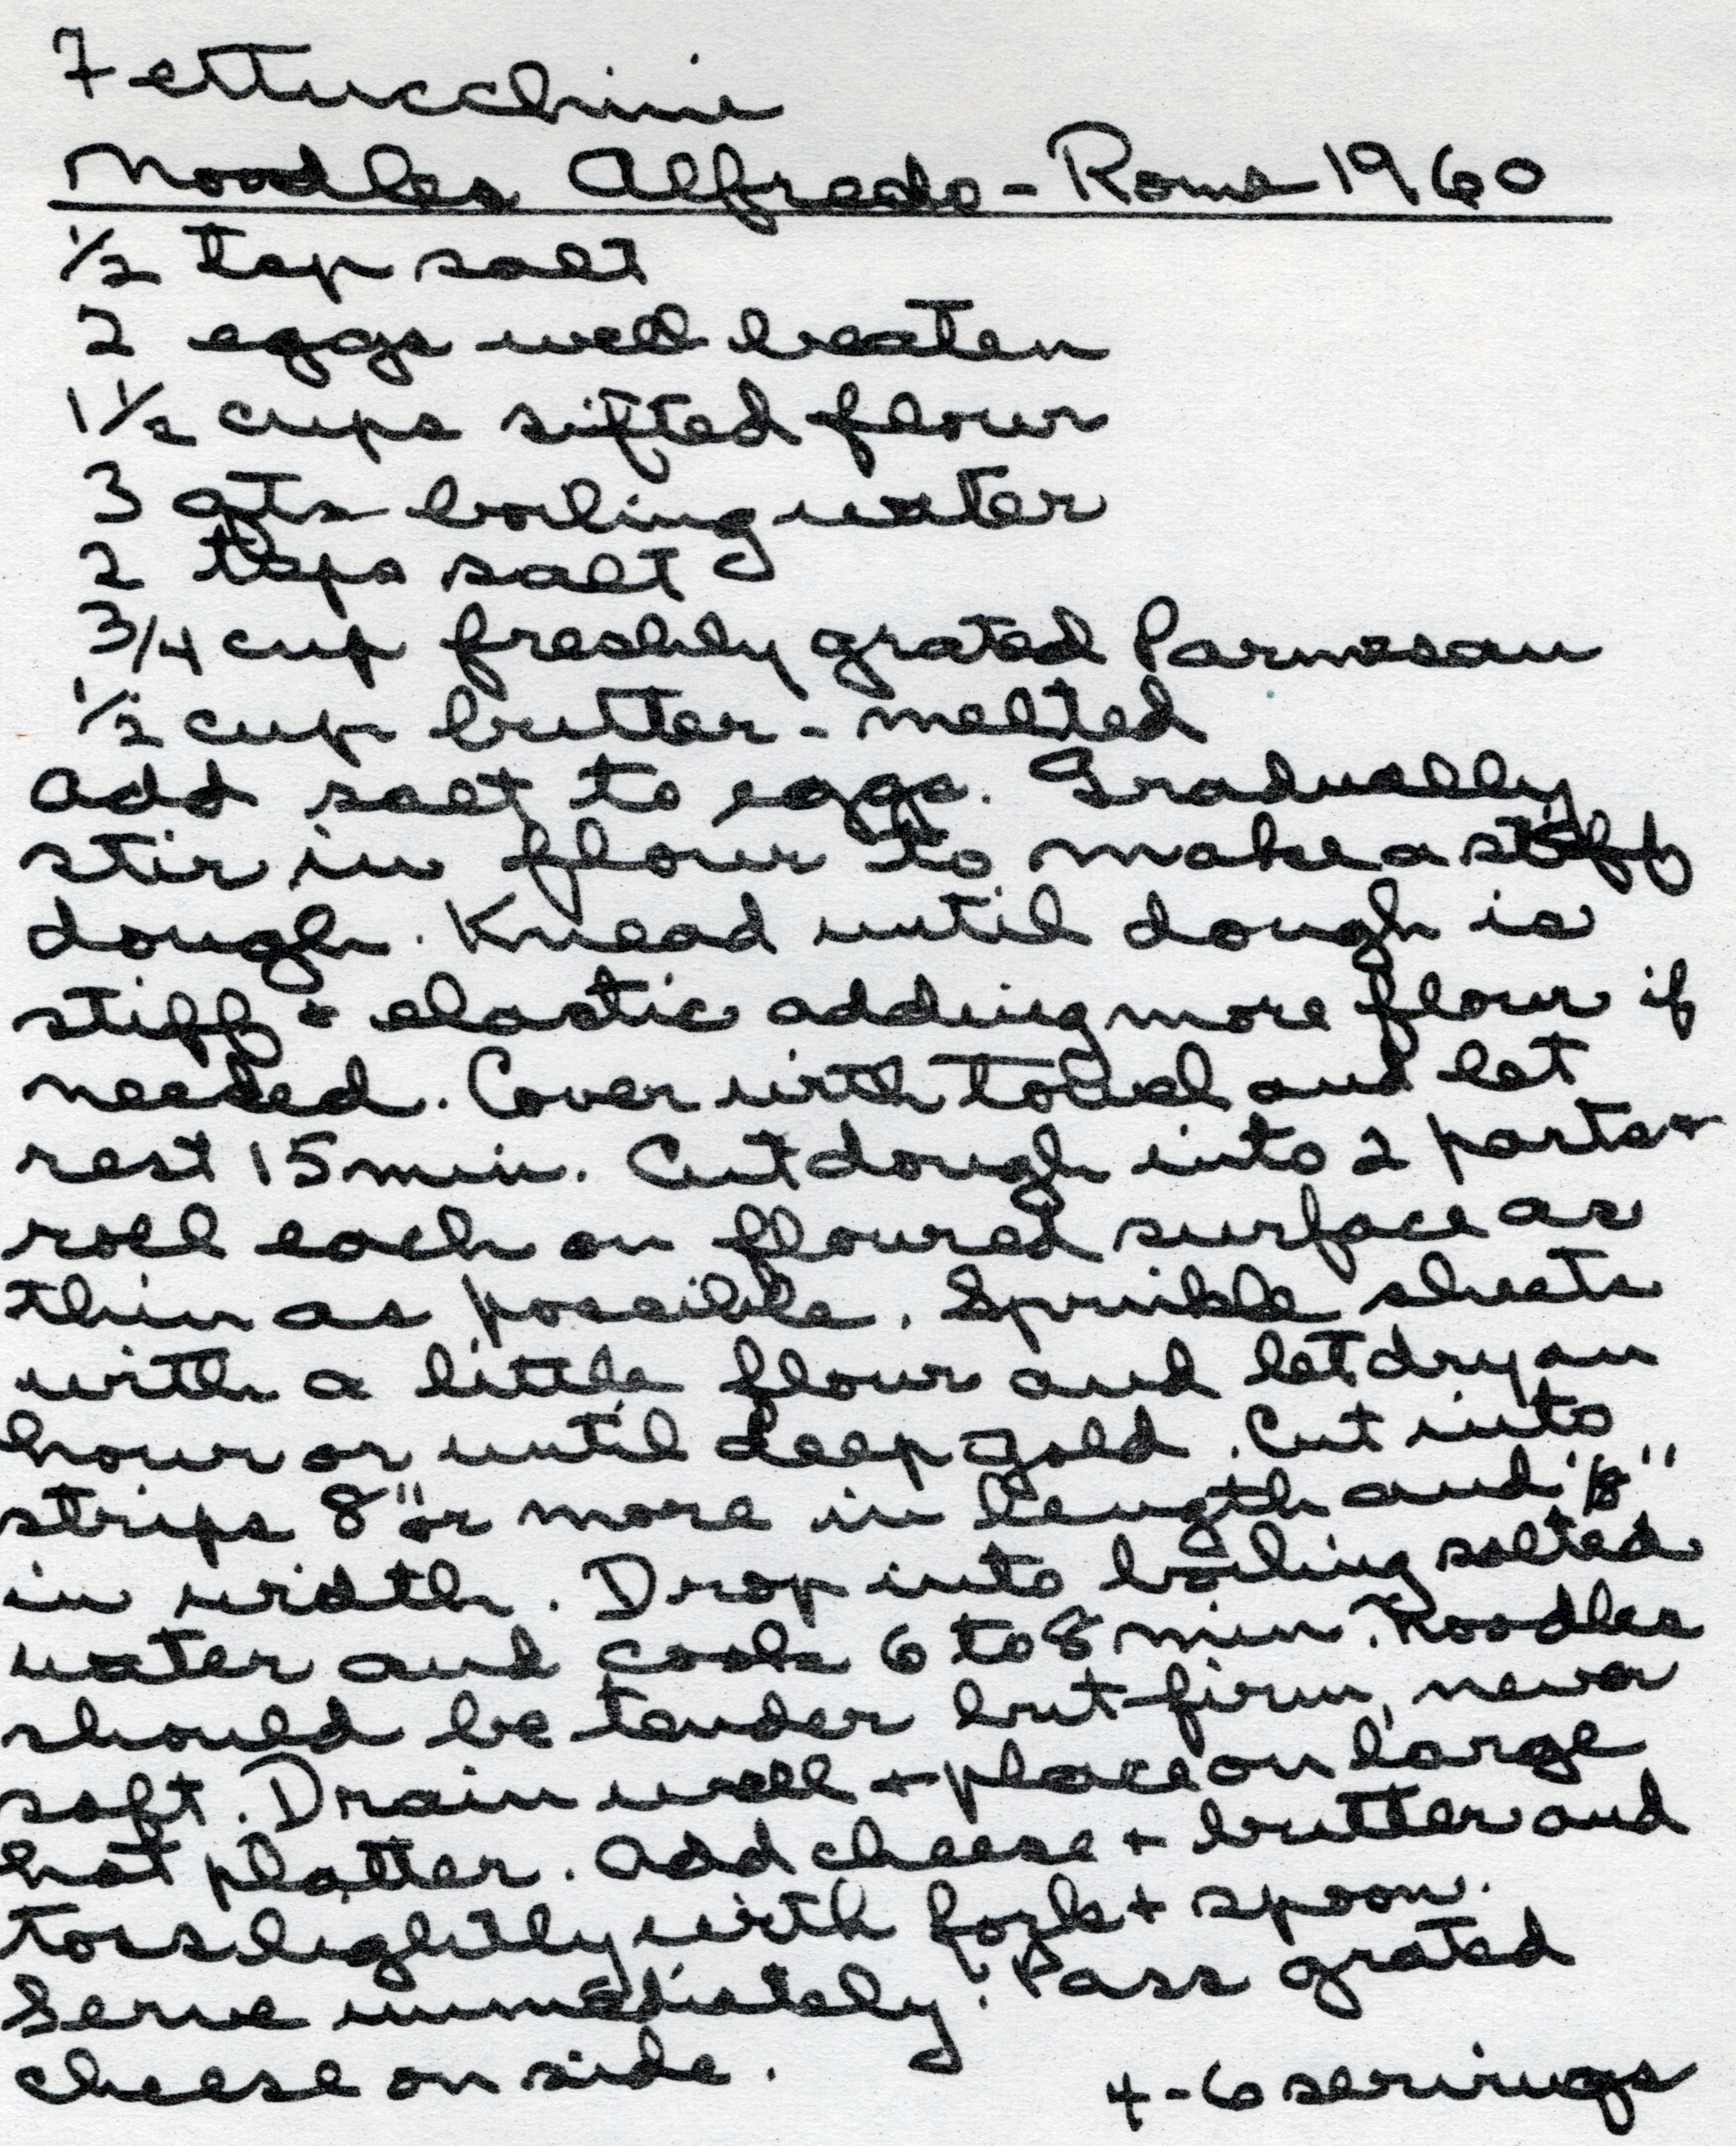 Fettucchini
Noodles Alfredo - Rome 1960
1/2 tsp salt
2 eggs well beaten
1 1/2 cups sifted flour
3 qts boiling water
2 tsps salt
3/4 cup freshly grated Parmesan
1/2 cup butter - melted
Add salt to eggs. Gradually
stir in flour to make a stiff
dough. Knead until dough is
stiff + elastic adding more flour if
needed. Cover with towel and let
rest 15 min. Cut dough into 2 parts +
roll each on floured surface as
thin as possible. Sprinkle sheets
with a little flour and let dry an
hour or until deep gold. Cut into
strips 8" or more in length and 1/8"
in width. Drop into boiling salted
water and cook 6 to 8 min. Noodles
should be tender but firm, never
soft. Drain well + place on large
hot platter. Add cheese + butter and
toss lightly with fork + spoon.
Serve immediately. Pass grated
cheese on side.
4-6 servings